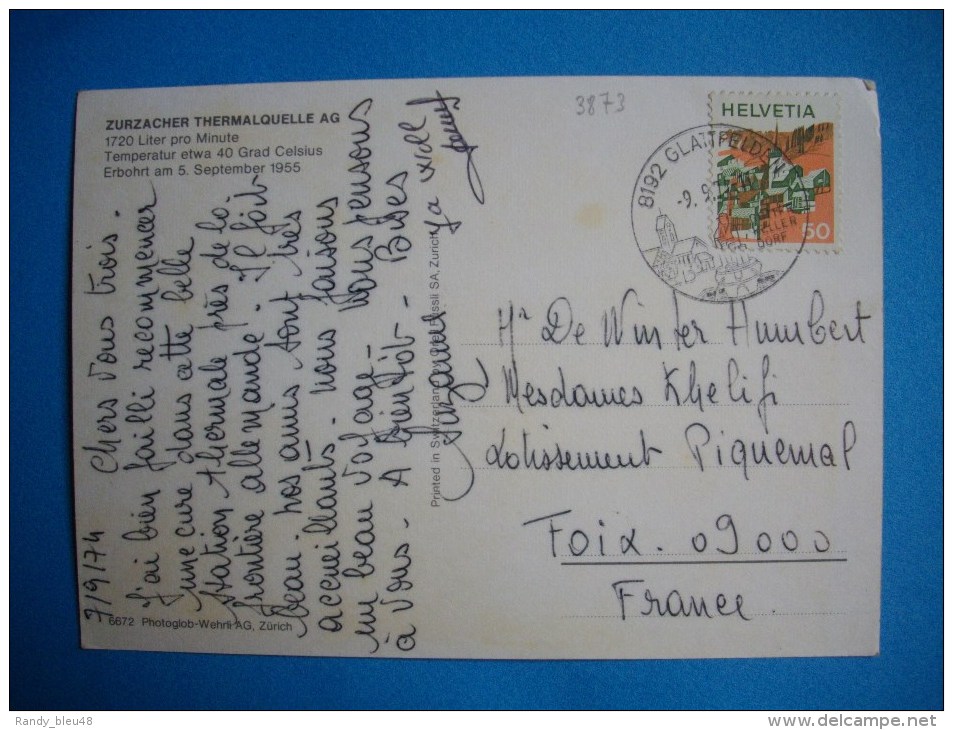 ZURZACHER THERMALQUELLE AG
1720 Liter pro Minute
Temperatur etwa 40 Grad Celsius
Erbohrt am 5. September 1955
7/9/74 Chers vous trois.
J'ai bien failli recommencer
une cure dans cette belle
station thermale près de la
frontière allemande. Il fait
beau. nos amis sont très
accueillants. nous faisons
un beau voyage. Nous pensons
à vous. A bientôt. Bises
Suzanne
6672 Photoglob-Wehrli AG, Zürich
Printed in Switzerland Füssli SA, Zurich
3873
HELVETIA
50
8192 GLATTFELDEN
-9.9.
Mr De Winter Humbert
Mesdames Khelifi
Lotissement Piquemal
Foix. 09000
France.
Randy_bleu48
www.delcampe.net